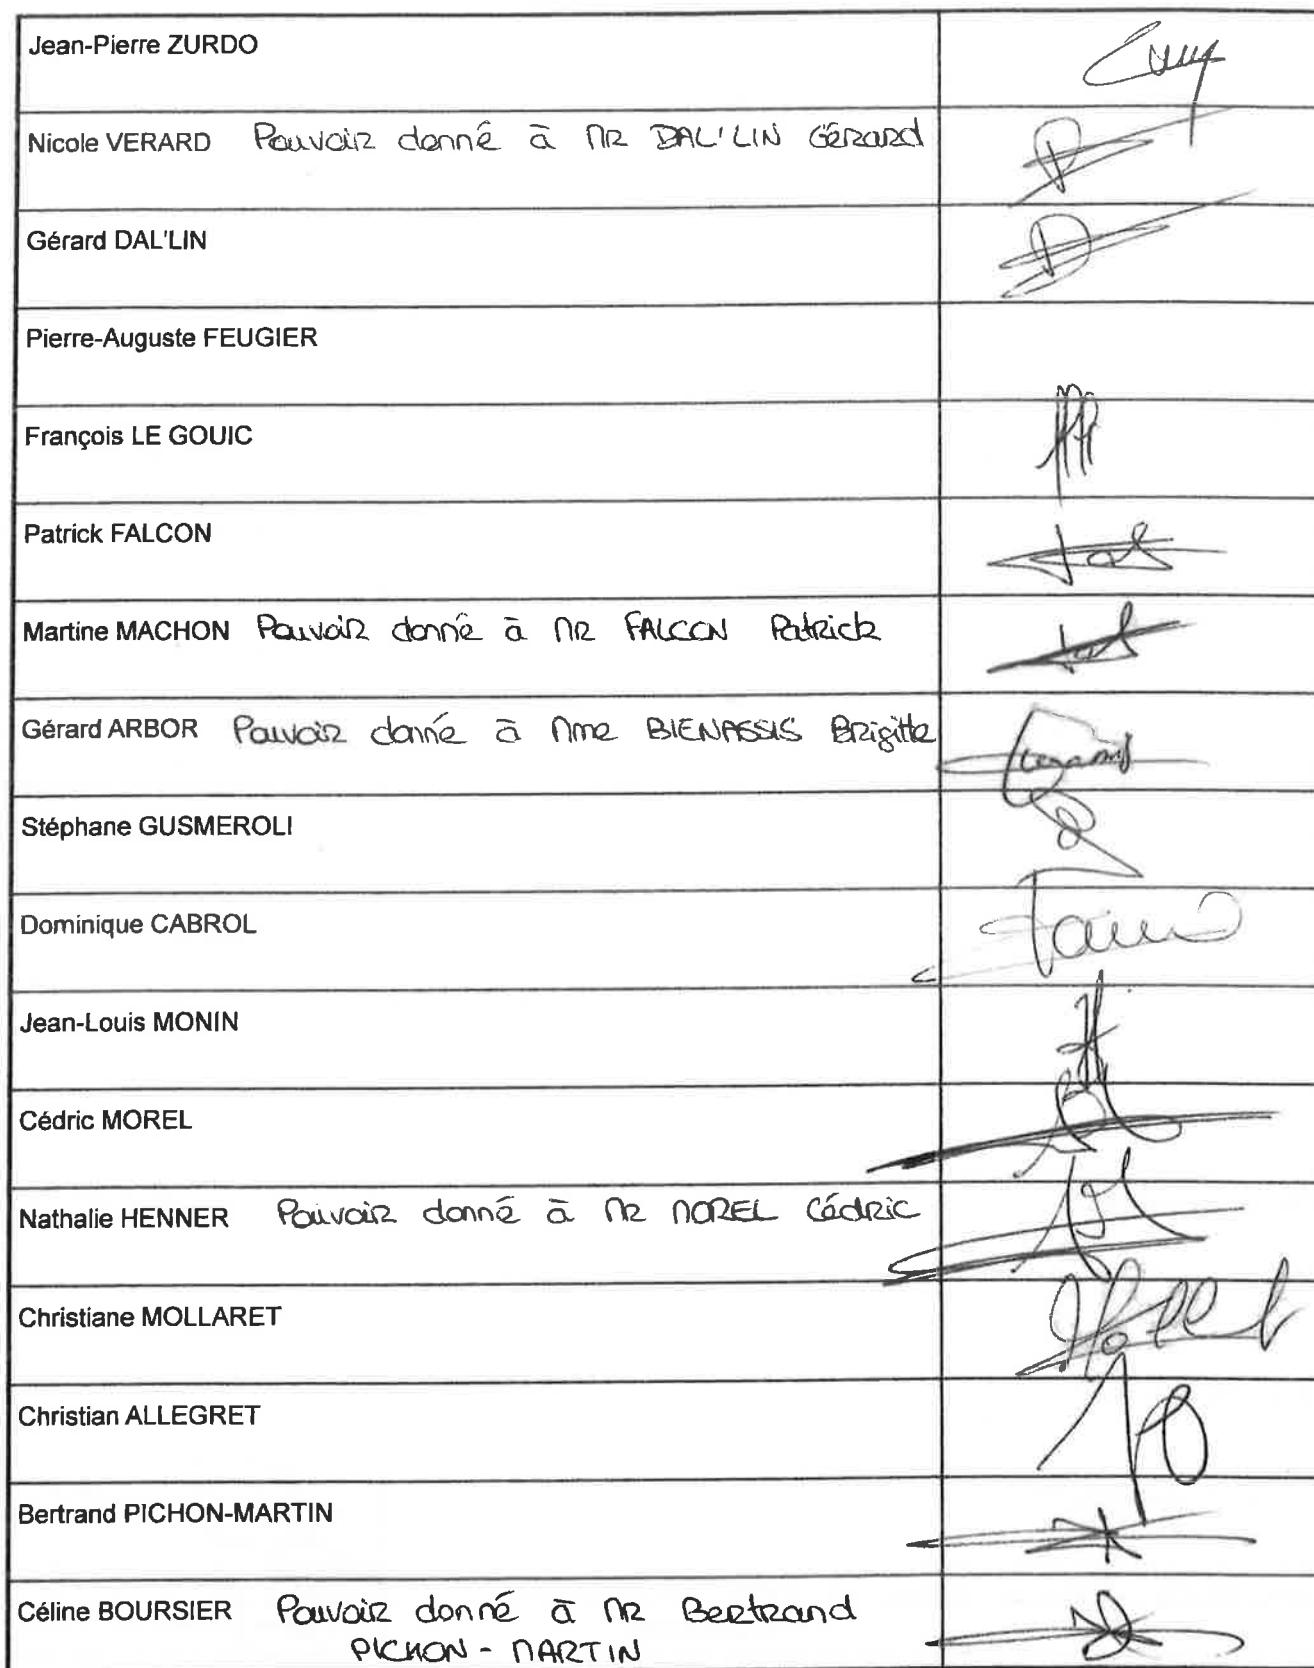 Jean-Pierre ZURDO
Nicole VERARD Pouvoir donné à Mr DAL'LIN Gérard
Gérard DAL'LIN
Pierre-Auguste FEUGIER
François LE GOUIC
Patrick FALCON
Martine MACHON Pouvoir donné à Mr FALCON Patrick
Gérard ARBOR Pouvoir donné à Mme BIENASSIS Brigitte
Stéphane GUSMEROLI
Dominique CABROL
Jean-Louis MONIN
Cédric MOREL
Nathalie HENNER Pouvoir donné à Mr MOREL Cédric
Christiane MOLLARET
Christian ALLEGRET
Bertrand PICHON-MARTIN
Céline BOURSIER Pouvoir donné à Mr Bertrand
PICHON - MARTIN